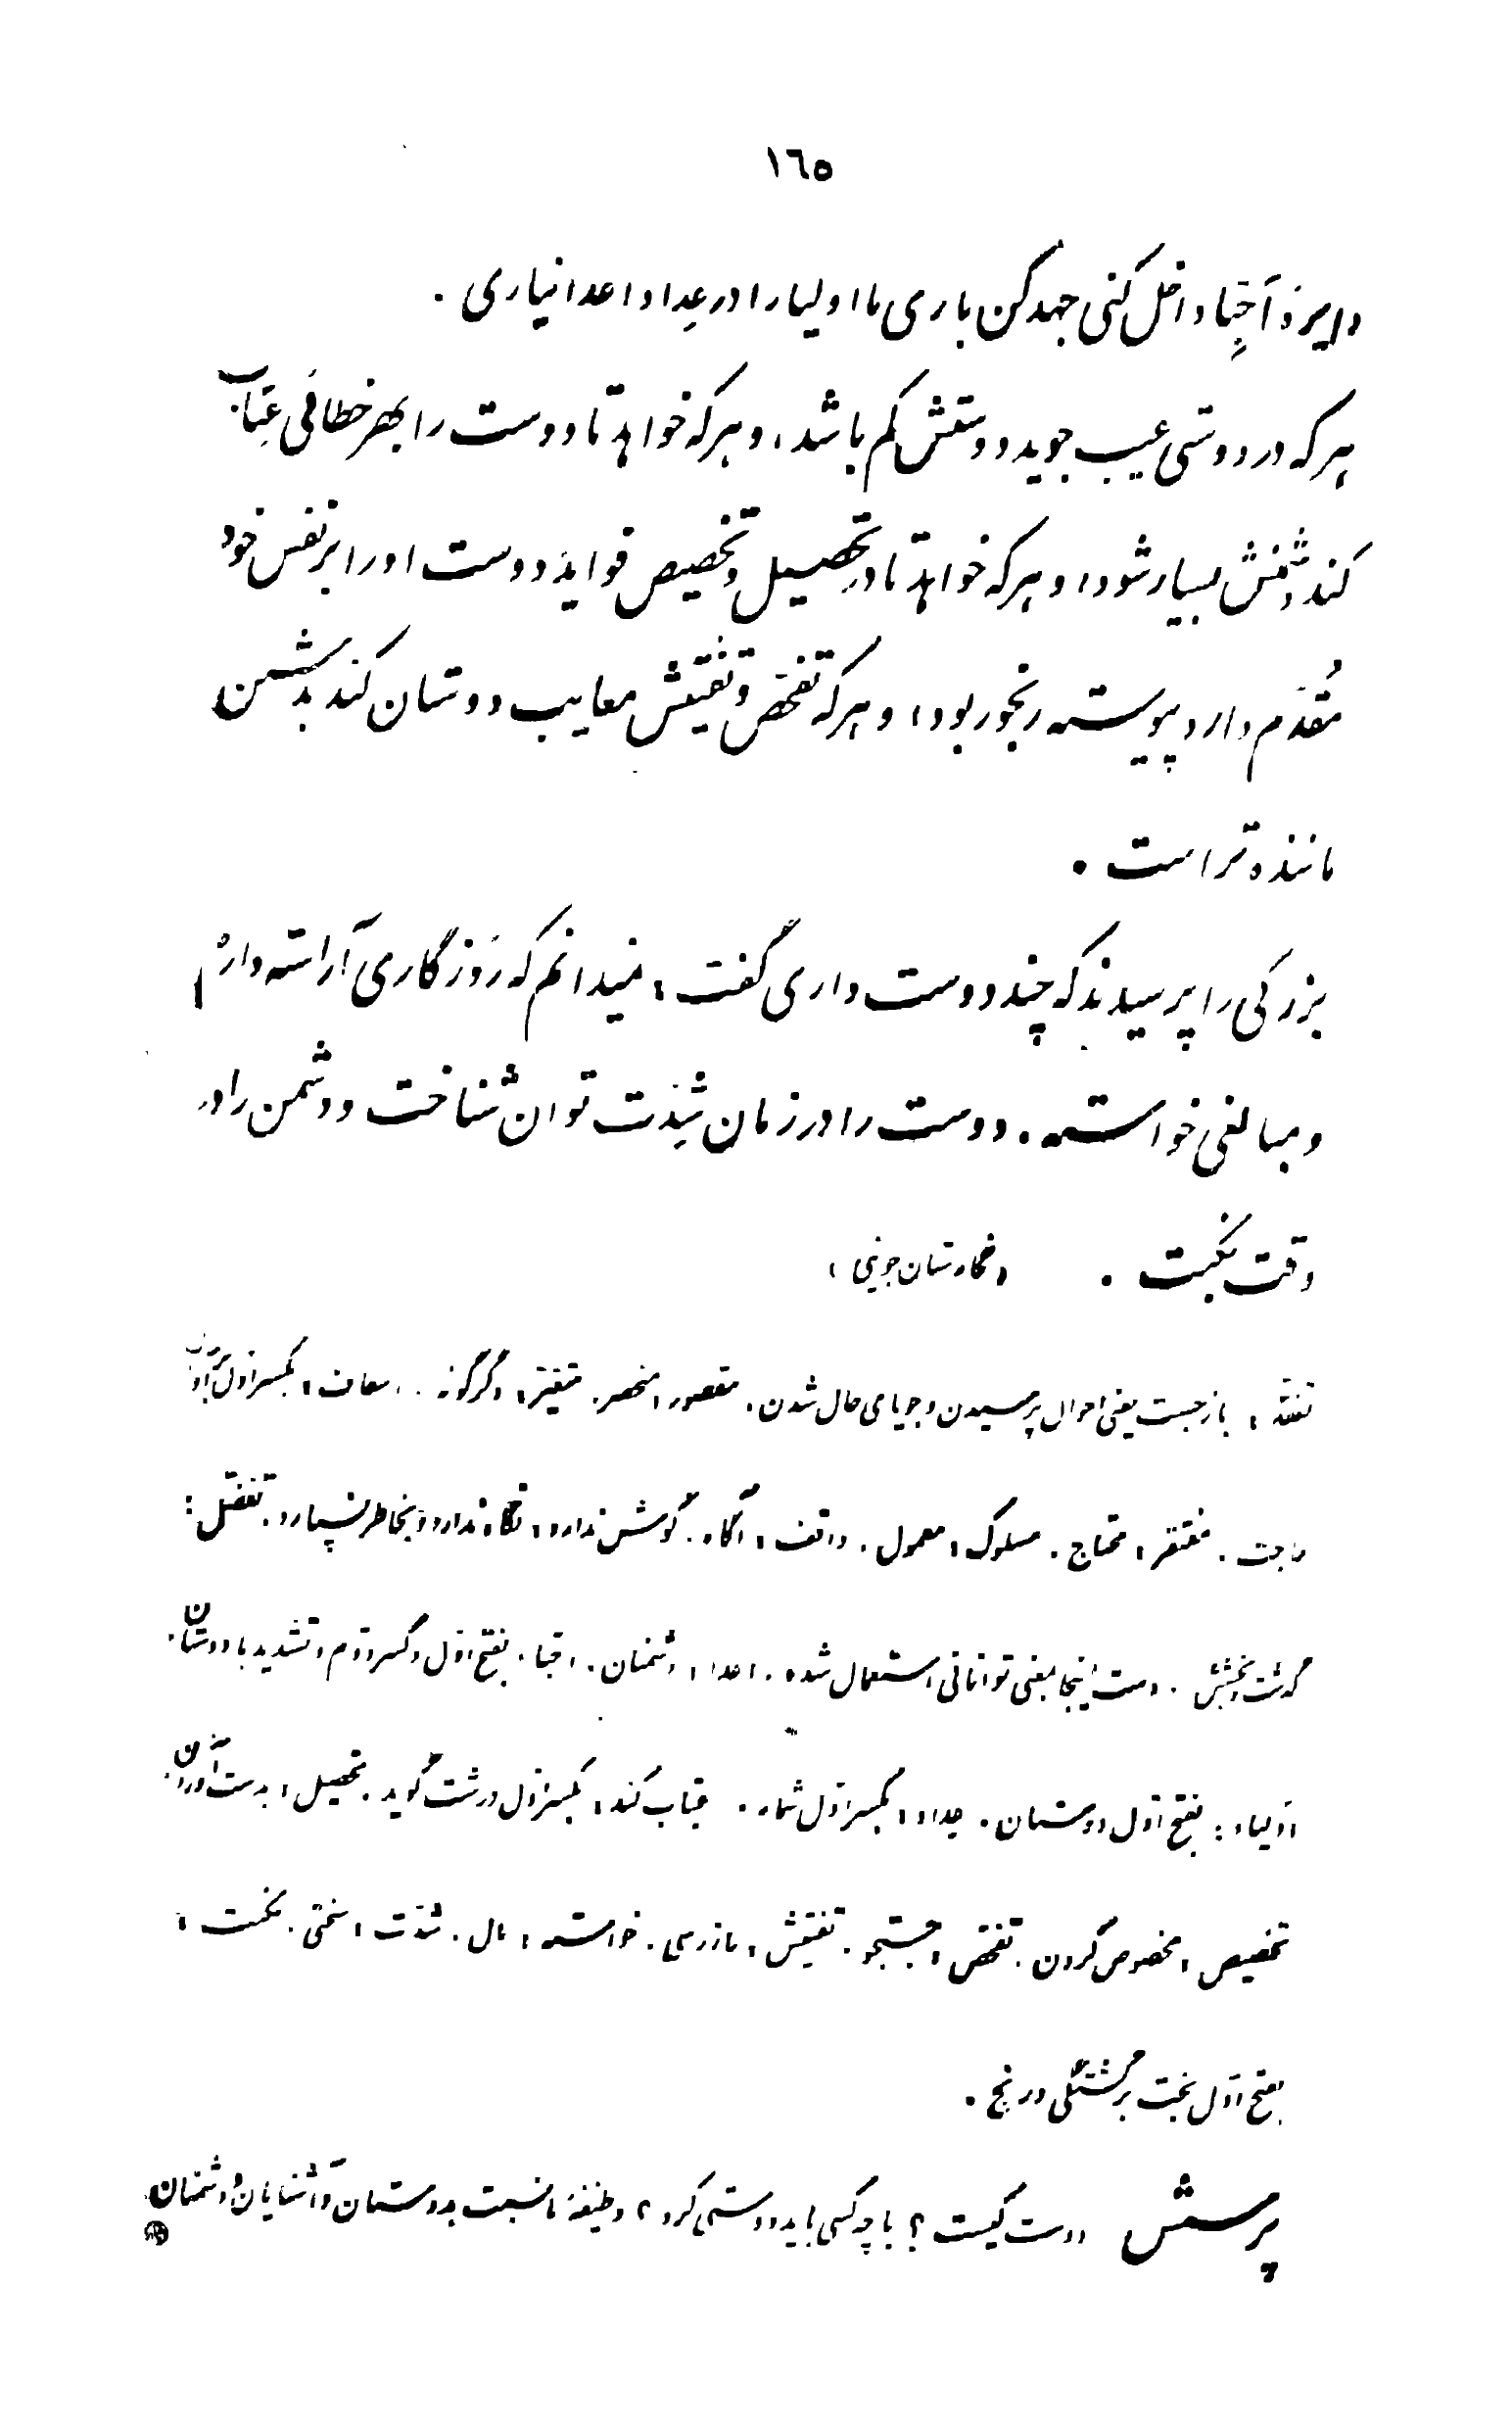 ١٦٥
دایرهٔ اَحِبّا داخل کنی جهد کن باری تا اولیا را در عِداد اعدا نیاری .
هر که در دوستی عیب جوید دوستش کم باشد ، و هر که خواهد تا دوست را بهر خطائی عِتاب
کند دشمنش بسیار شود ، و هر که خواهد تا در تحصیل و تخصیص فواید دوست او را بر نفس خود
مُقدّم دارد پیوسته رنجور بود ، و هر که تفحّص و تفتیش معایب دوستان کند بدشمن
ماننده تر است .
بزرگی را پرسیدند که چند دوست داری گفت : نمیدانم که روزگاری آراسته دارم
و مبالغی خواسته . دوست را در زمان شِدّت توان شناخت و دشمن را در
وقت نکبت . ( نگارستان جوینی )
تفقّد : بازجست یعنی احوال پرسیدن و جویای حال شدن . مقصور : منحصر . متغیّر : دگرگونه . معاف : بکسر اوّل
حاجت . مفتقر : محتاج . مسلوک : معمول . واقف : آگاه . گوش ندارد : نگاه ندارد و بخاطر نسپارد . تفضّل :
گذشت و بخشش . دست اینجا بمعنی توانائی استعمال شده . اعدا : دشمنان . احبّا : بفتح اوّل و کسر دوّم و تشدید با دوستان .
اولیاء : بفتح اوّل دوستان . عِداد : بکسر اوّل شمار . عِتاب کند : بکسر اوّل درشت گوید . تحصیل : بدست آوردن .
تخصیص : مخصوص کردن . تفحّص : جستجو . تفتیش : بازرسی . خواسته : مال . شدّت : سختی . نکبت :
بفتح اوّل بخت برگشتگی و رنج .
پرسش دوست کیست ؟ با چه کسی باید دوستی کرد ؟ وظیفهٔ ما نسبت بدوستان و آشنایان و دشمنان